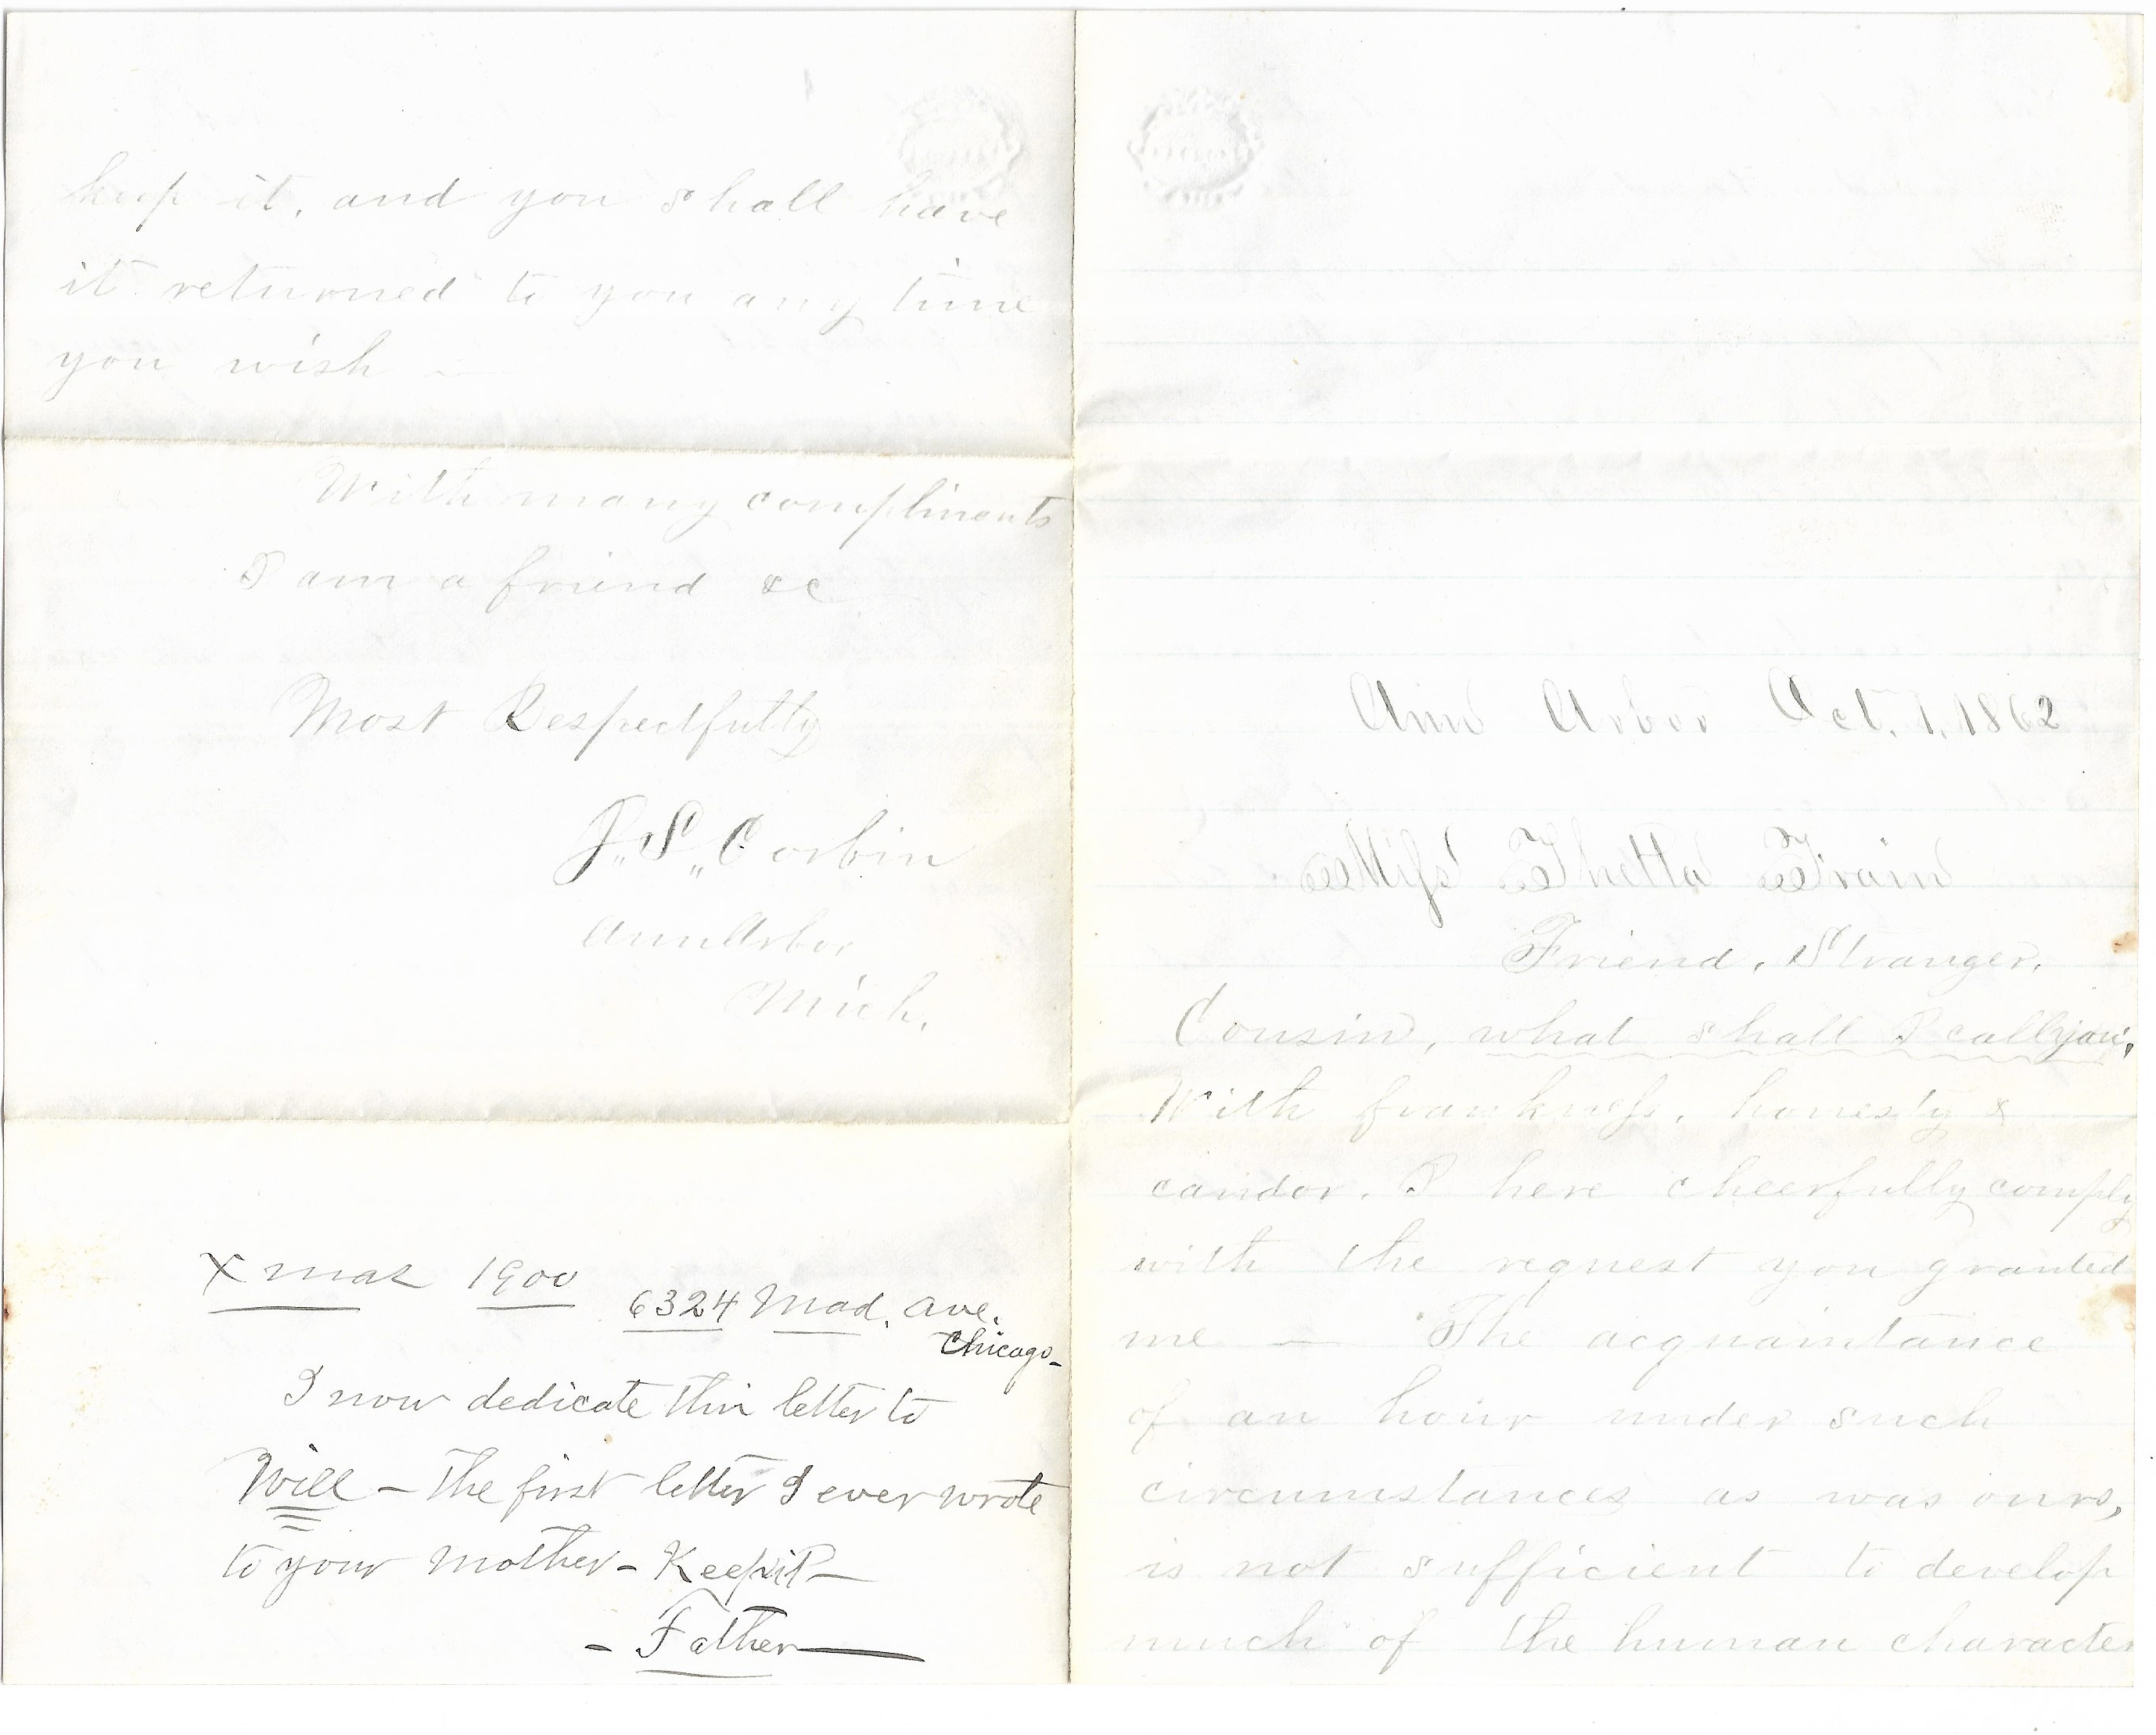 keep it, and you shall have
it returned to you any time
you wish —
With many compliments
I am a friend &c
Most Respectfully
J. S. Corbin
Ann Arbor
Mich.
Xmas 1900
6324 Mad. Ave.
Chicago-
I now dedicate this letter to
Will - The first letter I ever wrote
to your Mother - Keep it -
- Father
Ann Arbor Oct. 1, 1862
Miss Thetta Train
Friend, Stranger,
Cousin, what shall I call you,
With frankness, honesty &
candor, I here cheerfully comply
with the request you granted
me — The acquaintance
of an hour under such
circumstances as was ours,
is not sufficient to develop
much of the human character